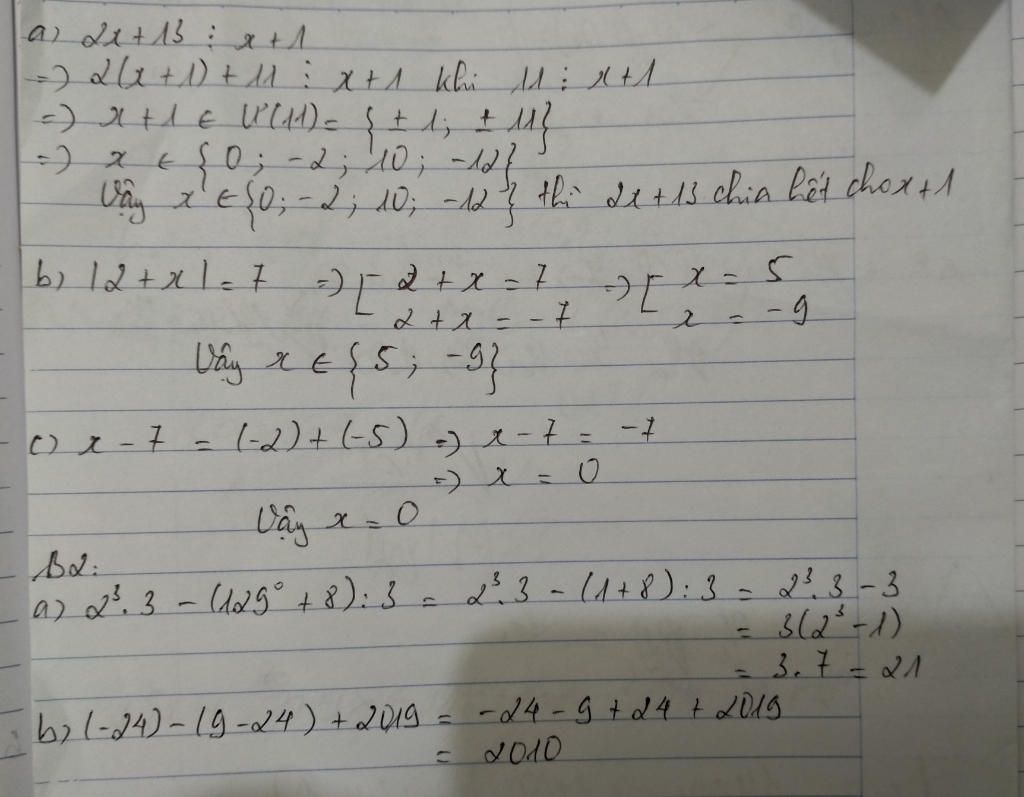 a) 2x+13 ⋮ x+1
=> 2(x+1)+11 ⋮ x+1 khi 11 ⋮ x+1
=> x+1 ∈ Ư(11)= {±1; ±11}
=> x ∈ {0; -2; 10; -12}
Vậy x ∈ {0; -2; 10; -12} thì 2x+13 chia hết cho x+1
b) |2+x| = 7 => [ 2+x = 7 => [ x = 5
2+x = -7 x = -9
Vậy x ∈ {5; -9}
c) x - 7 = (-2)+(-5) => x-7 = -7
=> x = 0
Vậy x = 0
B2:
a) 2³.3 - (129⁰+8):3 = 2³.3 - (1+8):3 = 2³.3 - 3
= 3(2³-1)
= 3.7 = 21
b) (-24)-(9-24)+2019 = -24-9+24+2019
= 2010